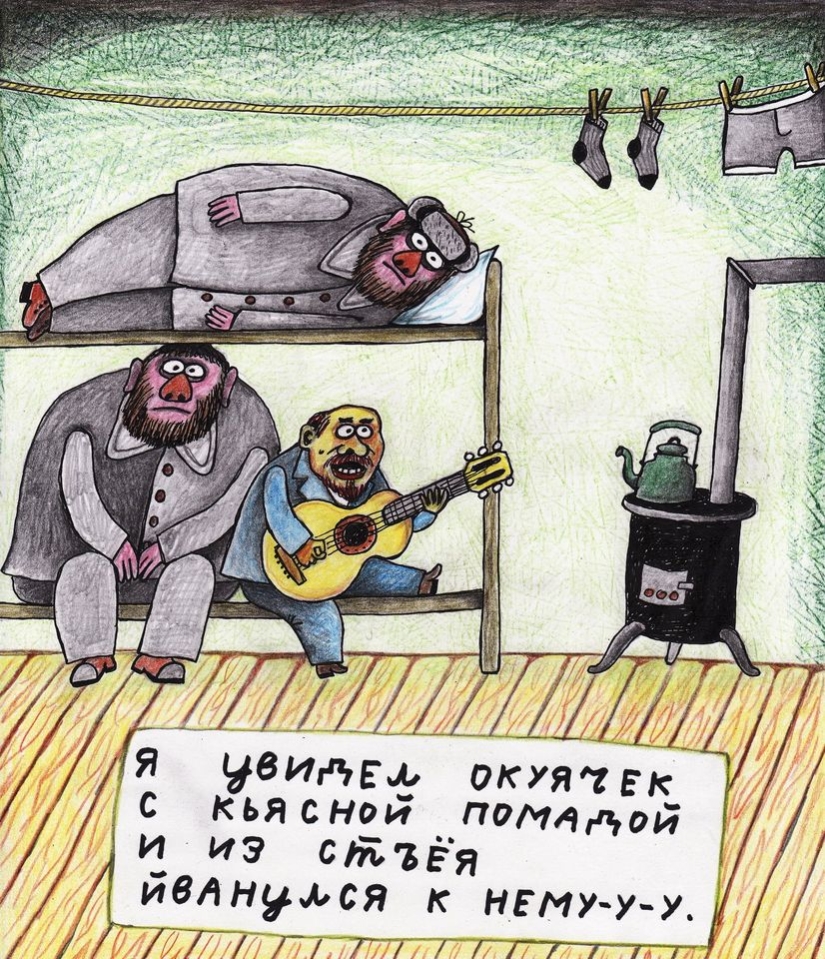 Я УВИДЕЛ ОКУЯЧЕК
С КЬЯСНОЙ ПОМАДОЙ
И ИЗ СТЪЁЯ
ЙВАНУЛСЯ К НЕМУ-У-У.